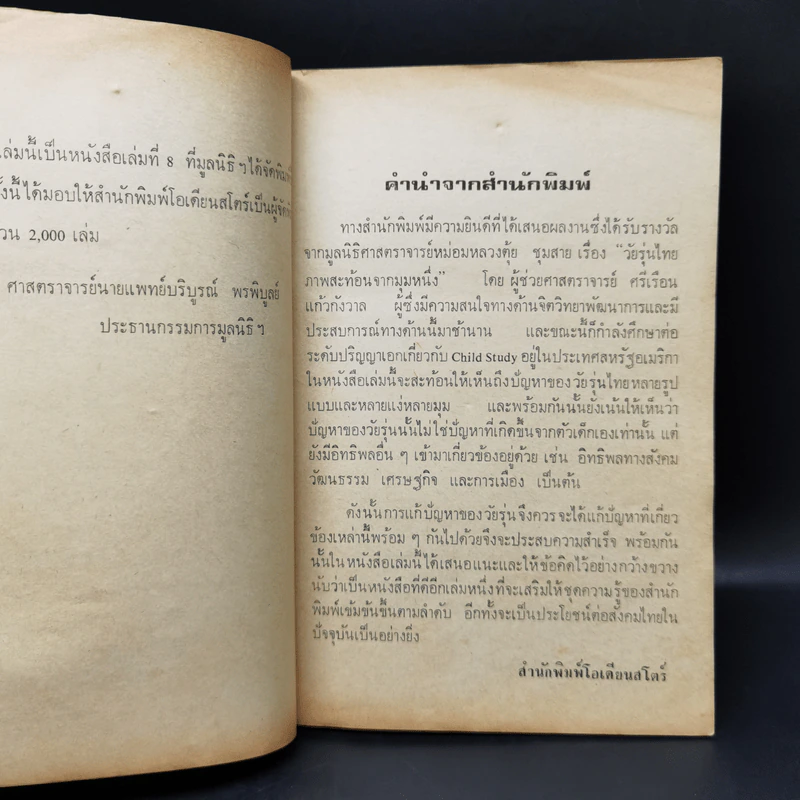 เล่มนี้เป็นหนังสือเล่มที่ 8 ที่มูลนิธิ ฯ ได้จัดพิมพ์
นี้ ได้มอบให้สำนักพิมพ์โอเดียนสโตร์เป็นผู้จัด
2,000 เล่ม
ศาสตราจารย์นายแพทย์บริบูรณ์ พรพิบูลย์
ประธานกรรมการมูลนิธิ ฯ
คำนำจากสำนักพิมพ์
ทางสำนักพิมพ์มีความยินดีที่ได้เสนอผลงานซึ่งได้รับรางวัล
จากมูลนิธิศาสตราจารย์หม่อมหลวงตุ้ย ชุมสาย เรื่อง “วัยรุ่นไทย
ภาพสะท้อนจากมุมหนึ่ง” โดย ผู้ช่วยศาสตราจารย์ ศรีเรือน
แก้วกังวาล ผู้ซึ่งมีความสนใจทางด้านจิตวิทยาพัฒนาการและมี
ประสบการณ์ทางด้านนี้มาช้านาน และขณะนี้ก็กำลังศึกษาต่อ
ระดับปริญญาเอกเกี่ยวกับ Child Study อยู่ในประเทศสหรัฐอเมริกา
ในหนังสือเล่มนี้จะสะท้อนให้เห็นถึงปัญหาของวัยรุ่นไทยหลายรูป
แบบและหลายแง่หลายมุม และพร้อมกันนั้นยังเน้นให้เห็นว่า
ปัญหาของวัยรุ่นนั้นไม่ใช่ปัญหาที่เกิดขึ้นจากตัวเด็กเองเท่านั้น แต่
ยังมีอิทธิพลอื่น ๆ เข้ามาเกี่ยวข้องอยู่ด้วย เช่น อิทธิพลทางสังคม
วัฒนธรรม เศรษฐกิจ และการเมือง เป็นต้น
ดังนั้นการแก้ปัญหาของวัยรุ่นจึงควรจะได้แก้ปัญหาที่เกี่ยว
ข้องเหล่านี้พร้อม ๆ กันไปด้วยจึงจะประสบความสำเร็จ พร้อมกัน
นั้นในหนังสือเล่มนี้ได้เสนอแนะและให้ข้อคิดไว้อย่างกว้างขวาง
นับว่าเป็นหนังสือที่ดีอีกเล่มหนึ่งที่จะเสริมให้ชุดความรู้ของสำนัก
พิมพ์เข้มข้นขึ้นตามลำดับ อีกทั้งจะเป็นประโยชน์ต่อสังคมไทยใน
ปัจจุบันเป็นอย่างยิ่ง
สำนักพิมพ์โอเดียนสโตร์